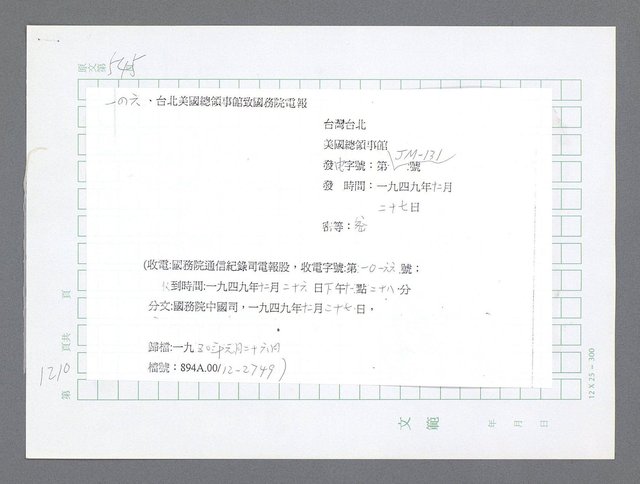 原文第 545
一四六、台北美國總領事館致國務院電報
台灣台北
美國總領事館
發電字號：第 JM-131 號
發 時間：一九四九年十二月
二十七日
密等：密
(收電:國務院通信紀錄司電報股，收電字號:第一0一六六號；
收到時間:一九四九年十二月二十六日下午十一點二十八分
分文:國務院中國司，一九四九年十二月二十七日，
歸檔:一九五〇年元月二十六日
檔號：894A.00/12-2749)
頁
頁共
1210
第
12 X 25 = 300
文 範
年 月 日